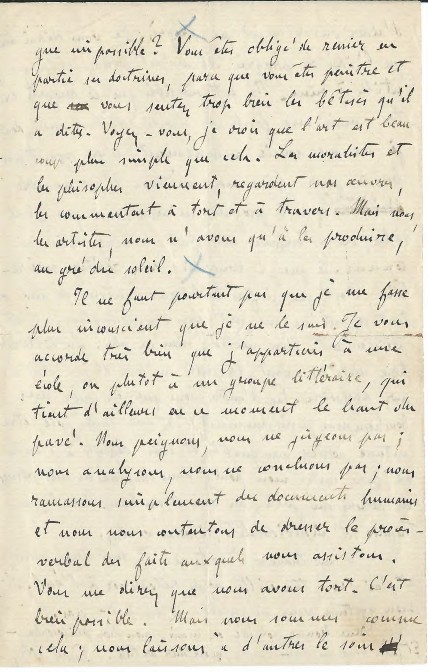 que impossible? Vous êtes obligé de renier en
partie ses doctrines, parce que vous êtes peintre et
que vous sentez trop bien les bêtises qu'il
a dites. Voyez-vous, je crois que l'art est beau
coup plus simple que cela. Les moralistes et
les philosophes viennent, regardent nos œuvres,
les commentent à tort et à travers. Mais nous,
les artistes, nous n'avons qu'à les produire,
au gré du soleil.
Il ne faut pourtant pas que je me fasse
plus inconscient que je ne le suis. Je vous
accorde très bien que j'appartiens à une
école, ou plutôt à un groupe littéraire, qui
tient d'ailleurs en ce moment le haut du
pavé. Nous peignons, nous ne jugeons pas;
nous analysons, nous ne concluons pas; nous
ramassons simplement des documents humains
et nous nous contentons de dresser le procès-
verbal des faits auxquels nous assistons.
Vous me direz que nous avons tort. C'est
bien possible. Mais nous sommes comme
cela; nous laissons à d'autres le soin